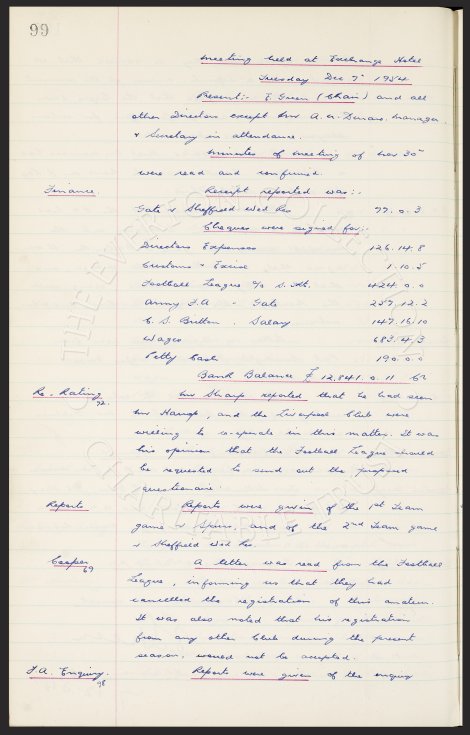 99
Meeting held at Exchange Hotel
Tuesday Dec 7th 1954
Present:- E. Green (Chair) and all
other Directors except Mr A. Manager
& Secretary in attendance.
Minutes of meeting of Nov 30th
were read and confirmed.
Finance. Receipt reported was:-
Gate v Sheffield Wed Res 77. 0. 3
Cheques were signed for:
Directors Expenses 126. 14. 8
Customs & Excise 1. 10. 5
Football League % S. 424. 0. 0
Army F.A " Gate 257. 12. 2
C. S. Britton. Salary 147. 16. 10
Wages 683. 4. 3
Petty Cash 190. 0. 0
Bank Balance £ 12,841. 0. 11
Re. Rating 92. Mr Sharp reported that he had seen
Mr Harrop, and the Liverpool Club were
willing to co-operate in this matter. It was
his opinion that the Football League should
be requested to send out the proposed
questionaire.
Reports Reports were given of the 1st Team
game v Spurs, and of the 2nd Team game
v Sheffield Wed Res.
Cooper 69 A letter was read from the Football
League, informing us that they had
cancelled the registration of this amateur.
It was also noted that his registration
from any other Club during the present
season, would not be accepted.
F.A. Enquiry. 98 Reports were given of the enquiry
THE EVERTON COLLECTION
CHARITABLE TRUST